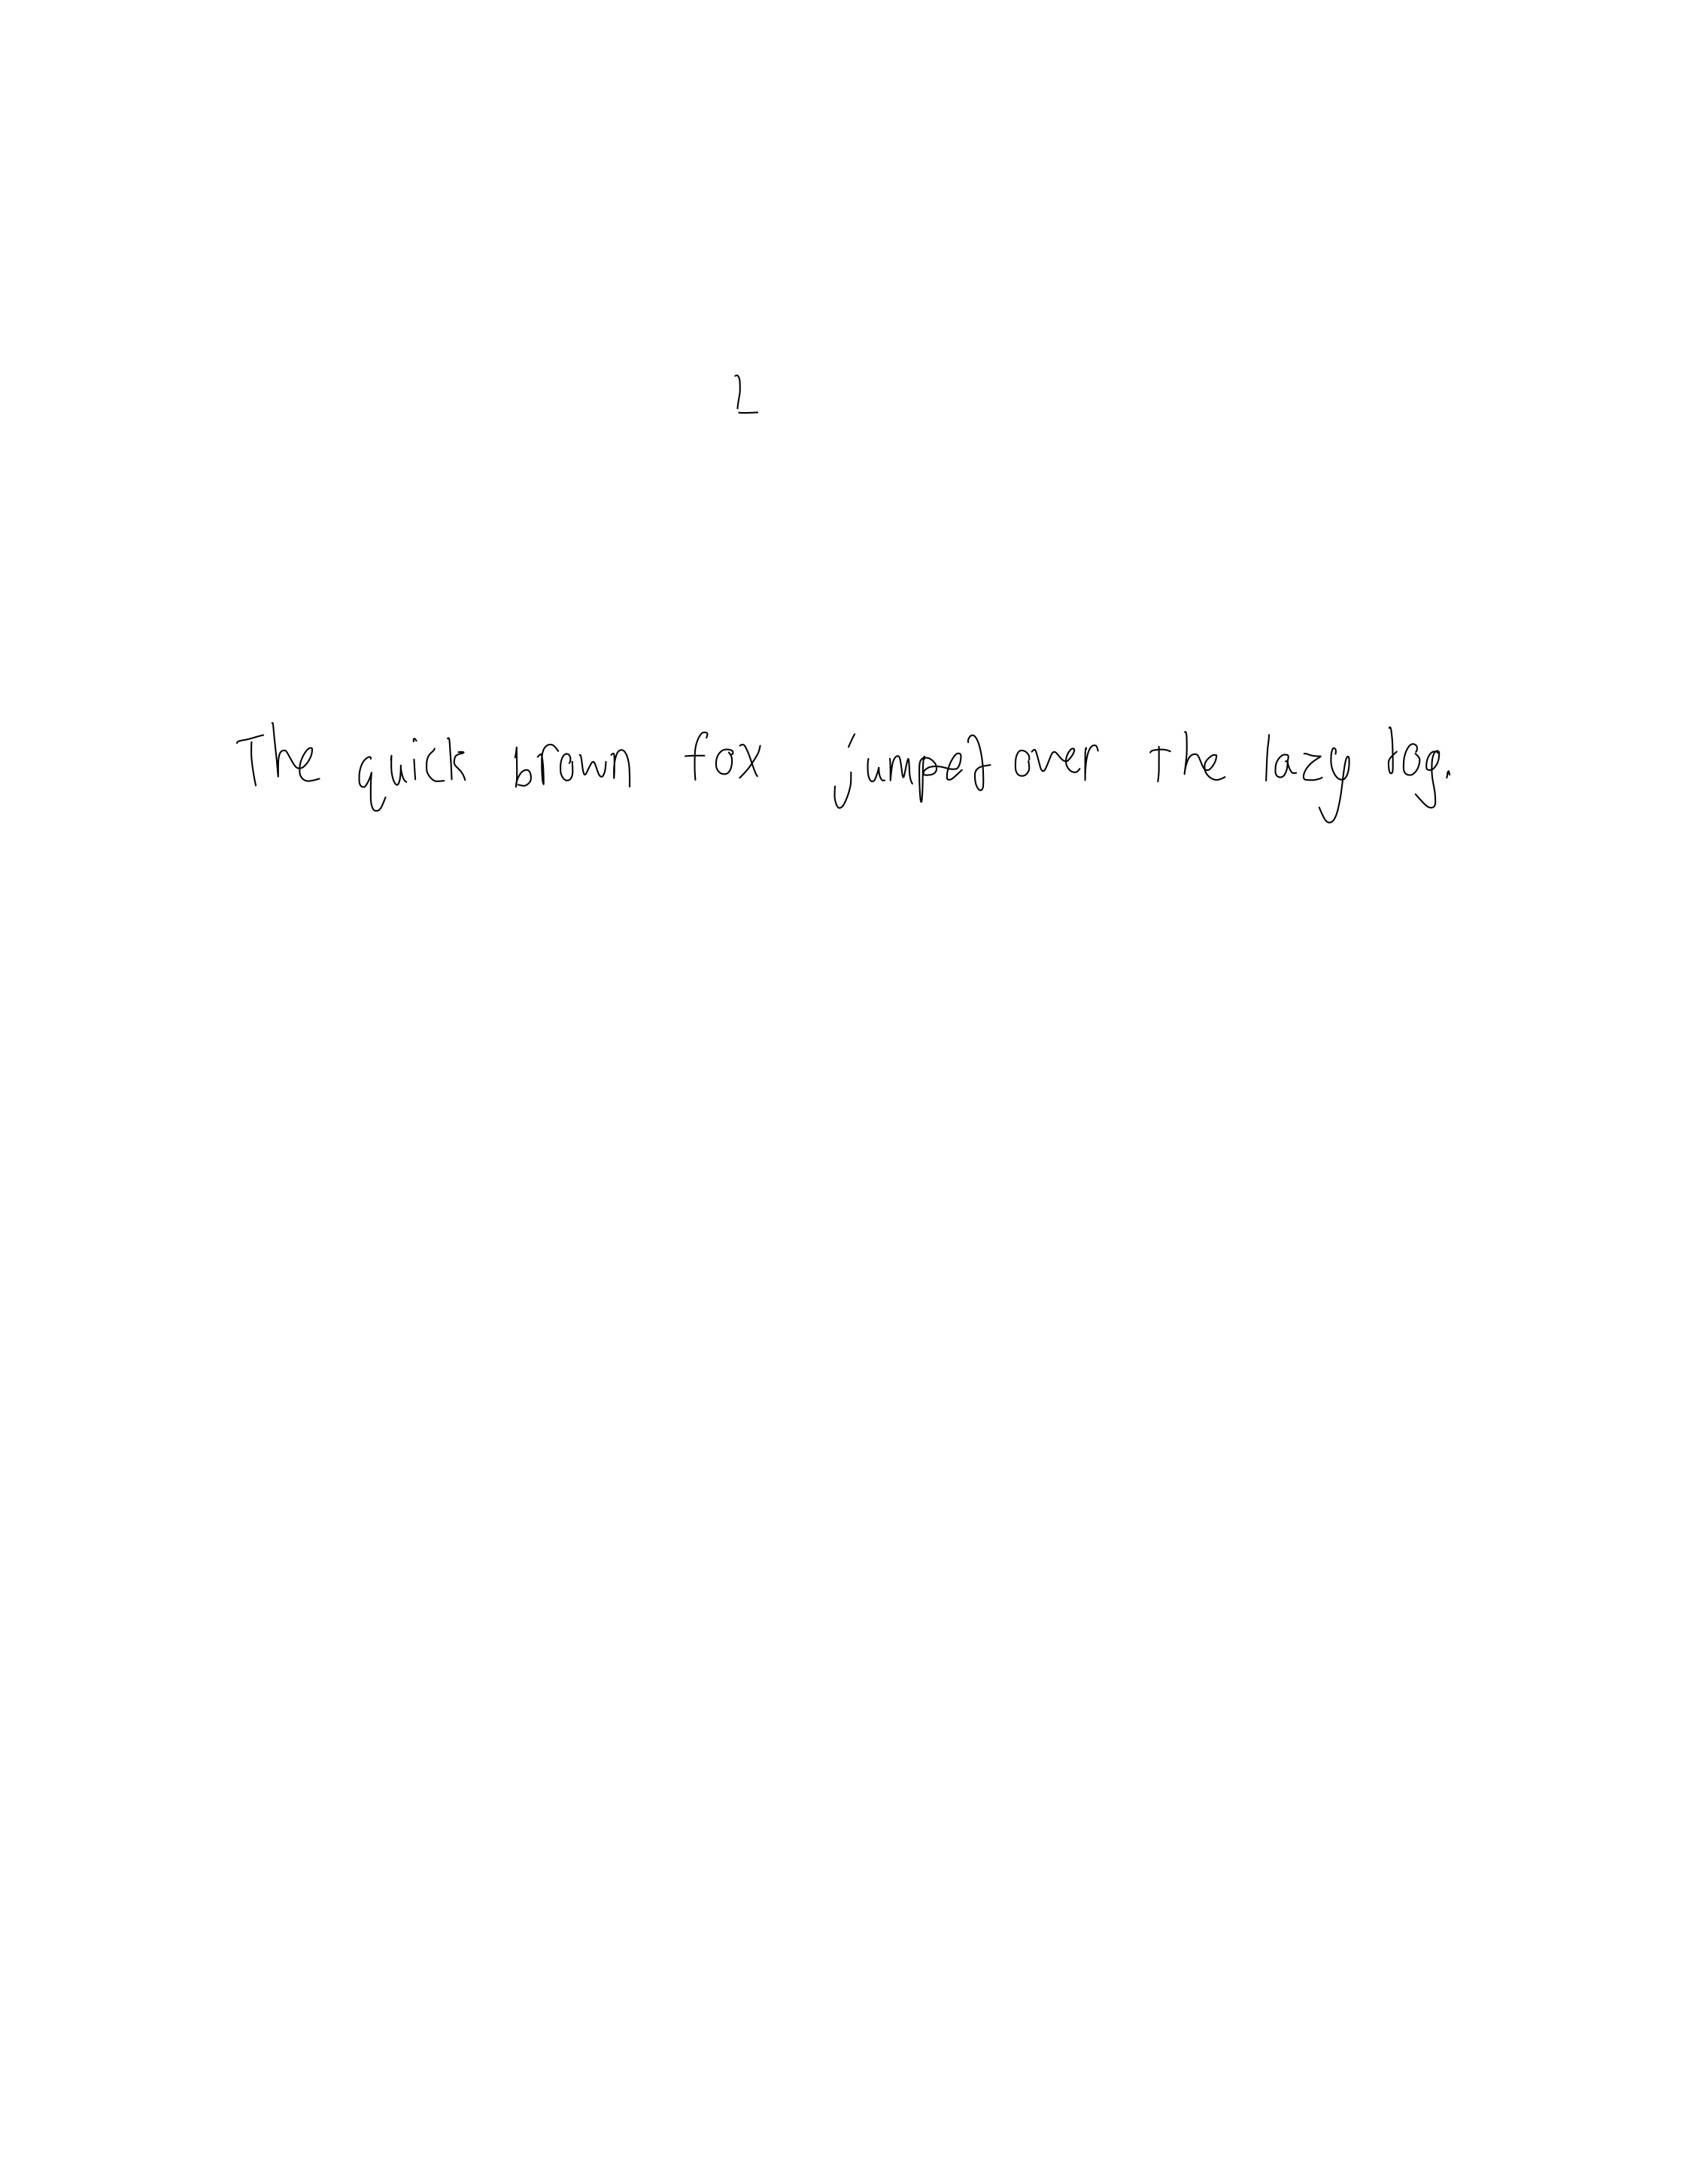 2
The quick brown fox jumped over the lazy dog.